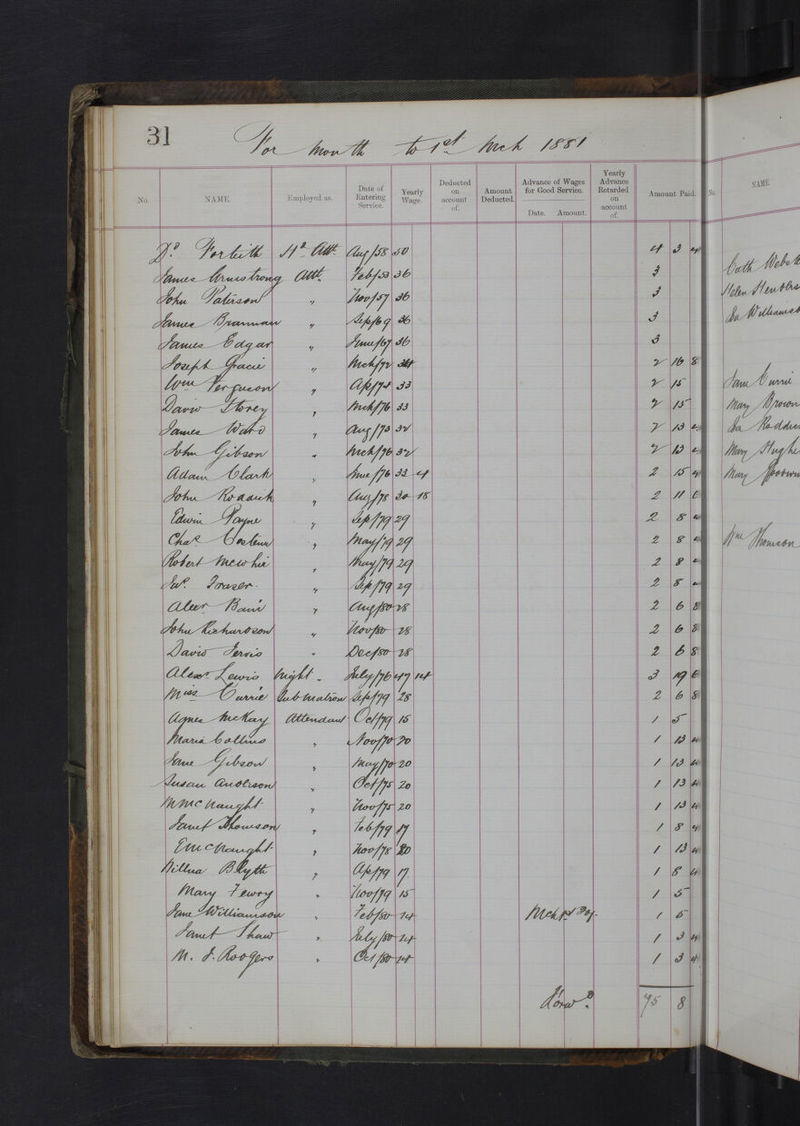 31
For month to 1st Mch 1881
No. NAME. Employed as. Date of Entering Service. Yearly Wage. Deducted on account of. Amount Deducted. Advance of Wages for Good Service. Date. Amount. Yearly Advance Retarded on account of. Amount Paid.
Do. Forteith Hd. Att. Aug/58 50 4 3 4
James Armstrong Att. Feb/53 36 3
John Paterson " Nov/57 36 3
James Brannan " Sep/69 36 3
James Edgar " June/67 36 3
Joseph Gracie " Mch/72 34 2 16 8
Wm Ferguson " Ap/74 33 2 15
David Storey " Mch/76 33 2 15
James Watt " Aug/73 32 2 13 4
John Gibson " Mch/76 32 2 13 4
Adam Clark " June/76 33 4 2 15 4
John Roddick " Aug/78 30 18 2 11 6
Edwin Payne " Sep/79 29 2 8 4
Chas " May/79 29 2 8 4
Robert McWhir " May/79 29 2 8 4
Jas. Fraser " Sep/79 29 2 8 4
Alexr Bain " Aug/80 28 2 6 8
John Richardson " Nov/80 28 2 6 8
David Jervis " Dec/80 28 2 6 8
Alexr Lewis Night " July/76 47 14 3 19 6
Miss Currie Sub Matron Sep/79 28 2 6 8
Agnes McKay Attendant Oct/79 15 1 5
Maria Collins " Nov/70 20 1 13 4
Jane Gibson " May/70 20 1 13 4
Susan Anderson " Oct/75 20 1 13 4
M McNaught " Nov/75 20 1 13 4
Janet Thomson " Feb/79 17 1 8 4
E McNaught " Nov/78 20 1 13 4
Willina Blyth " Ap/79 17 1 8 4
Mary Fewry " Nov/79 15 1 5
Jane Williamson " Feb/80 14 Mch 1st 1 5
Janet Shaw " July/80 14 1 3 4
M. J. Rodgers " Oct/80 14 1 3 4
Forwd. 75 8
No. NAME
Cath Webst
Helen Stenblrs
Williams
Jane Currie
Mary Brown
Mary Hughe
Mary
Wm Thomson